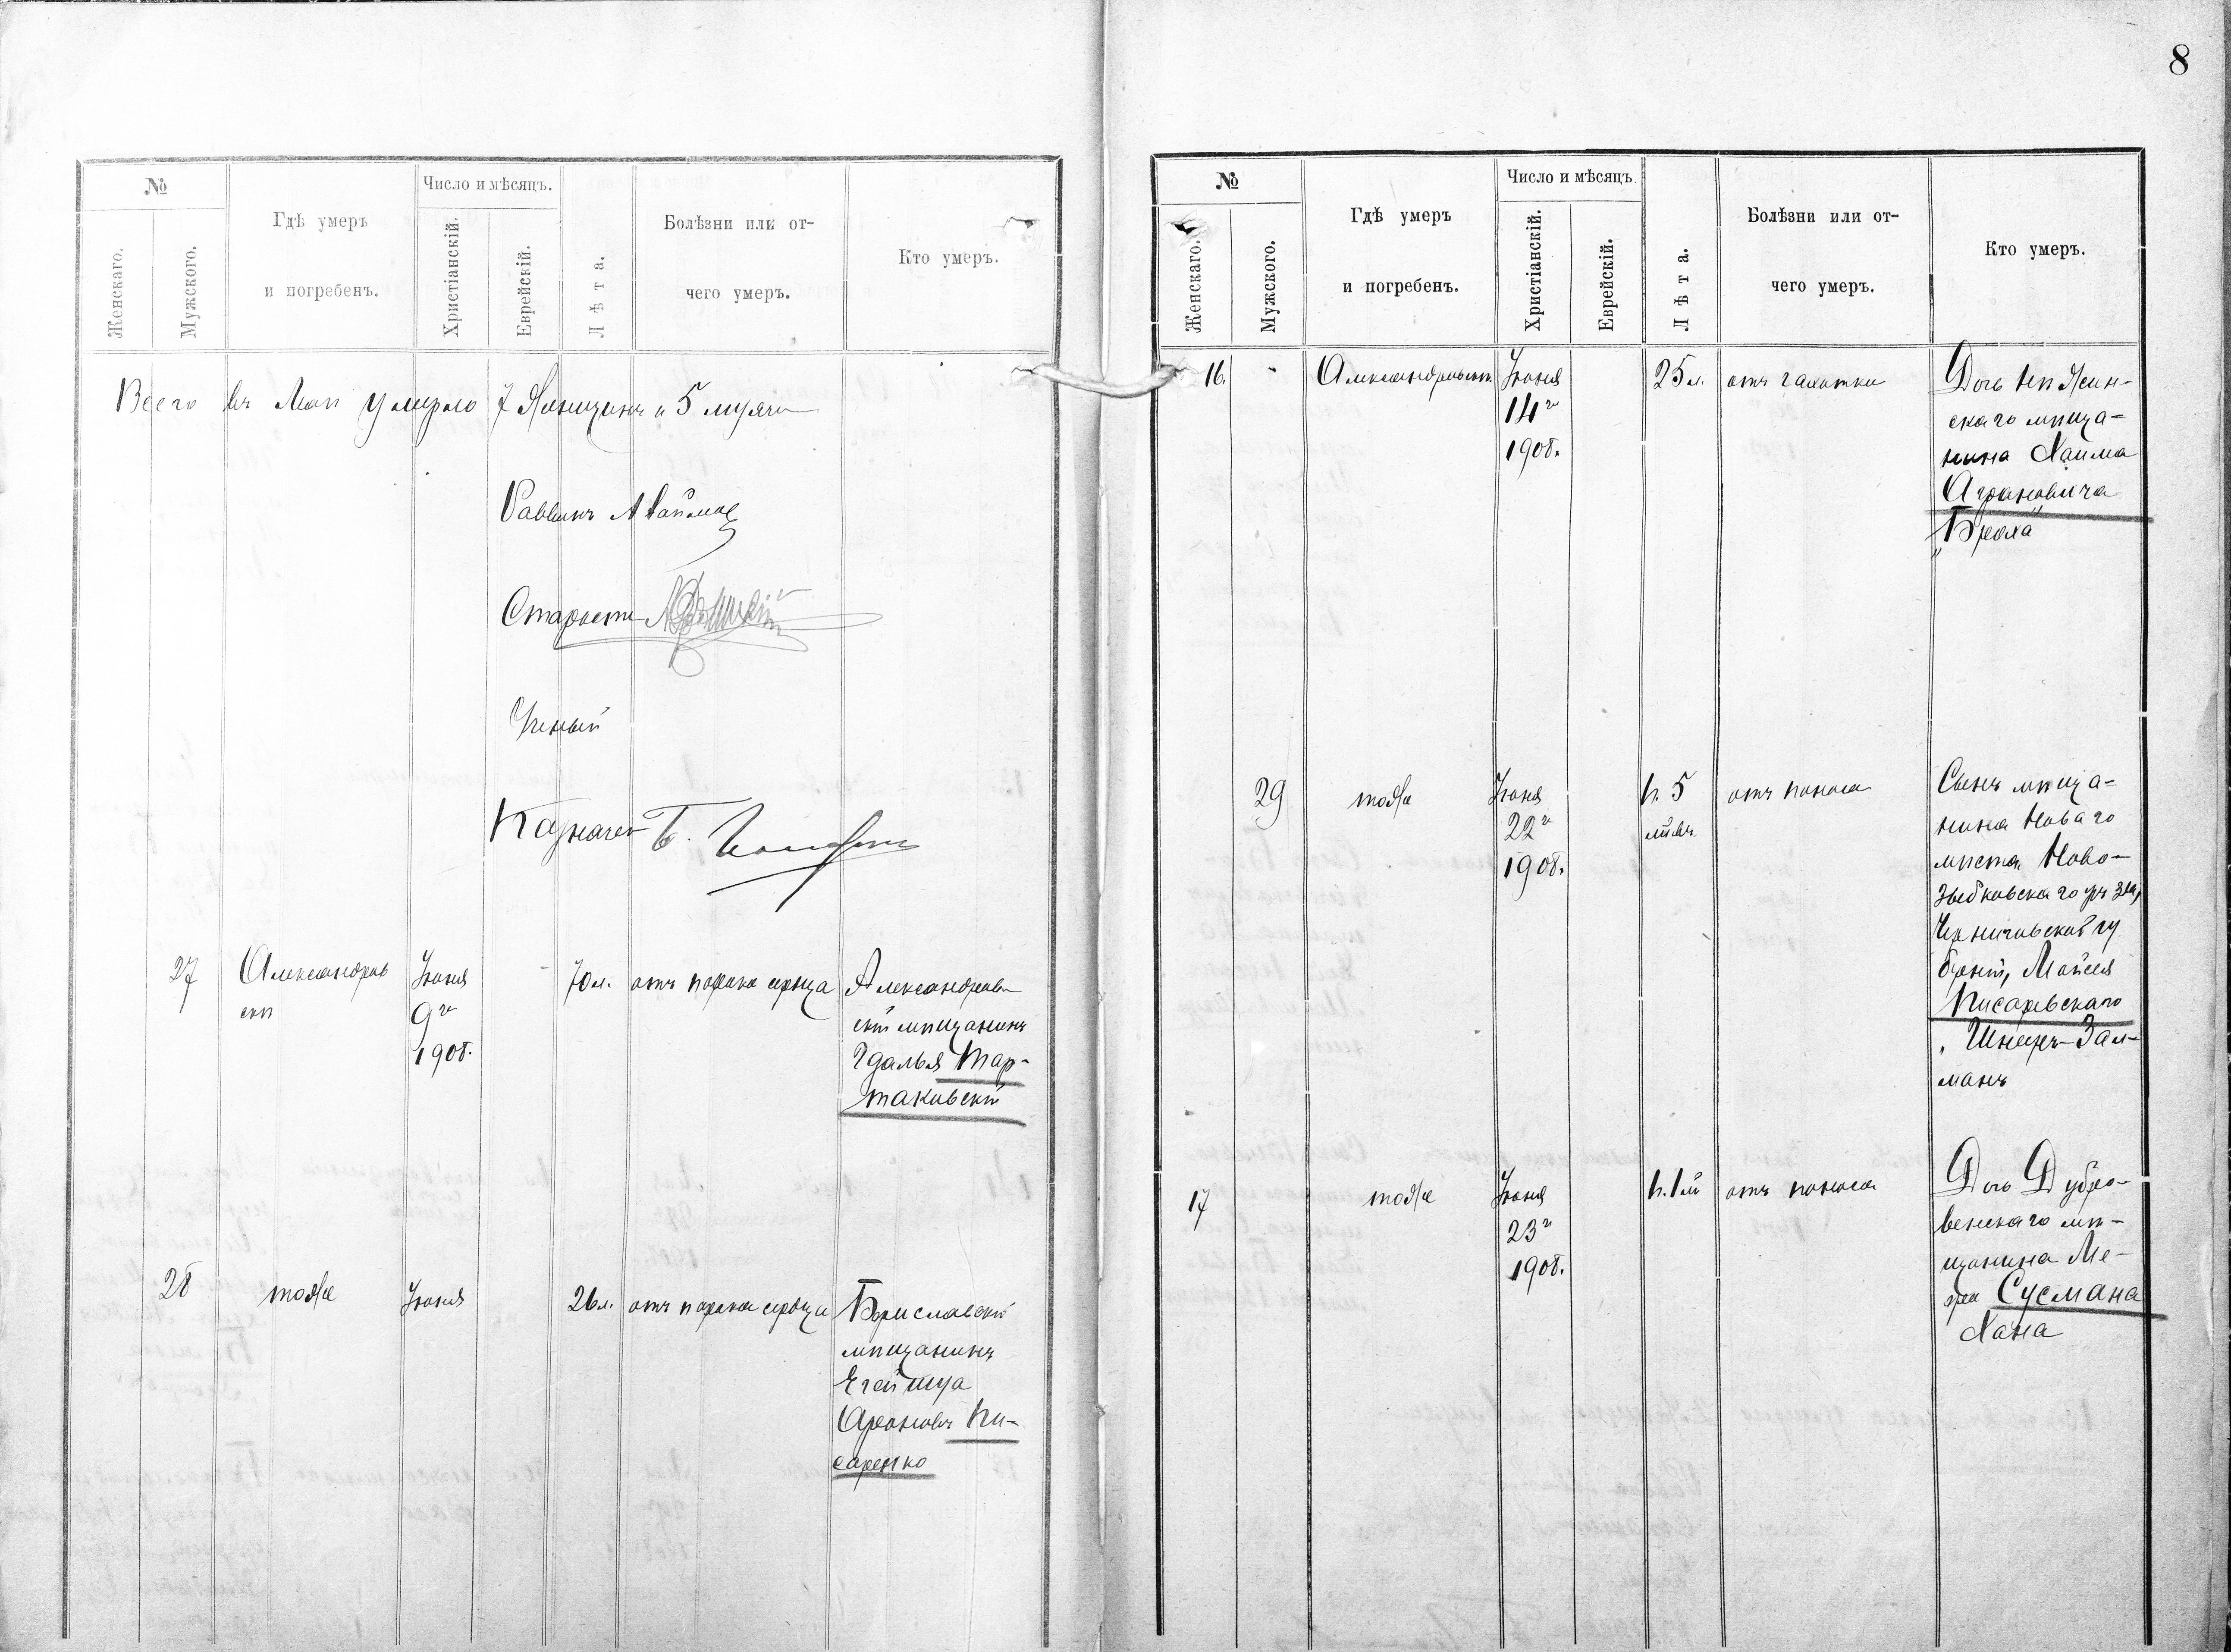 8
№
Женскаго.
Мужскаго.
Гдѣ умеръ
и погребенъ.
Число и мѣсяцъ.
Христіанскій.
Еврейскій.
Лѣта.
Болѣзни или от-
чего умеръ.
Кто умеръ.
Всего въ Маѣ умерло 7 женщинъ и 5 мужчинъ
Раввинъ
Староста
Ученый
Казначей
27
Александров
скѣ
Іюня
9го
1908.
70 л.
отъ порока сердца
Александров
скій мѣщанинъ
Гдалья Тар-
таковскій
28
тоже
Іюня
26 л.
отъ порока сердца
Бориславскій
мѣщанинъ
Ароновъ Пи-
саренко
№
Женскаго.
Мужскаго.
Гдѣ умеръ
и погребенъ.
Число и мѣсяцъ.
Христіанскій.
Еврейскій.
Лѣта.
Болѣзни или от-
чего умеръ.
Кто умеръ.
16.
-
Александровскѣ
Іюня
14го
1908.
25 л.
отъ чахотки
Дочь Нѣжин-
скаго мѣща-
нина Хаима
Аграновича
„Броха“
29
тоже
Іюня
22го
1908.
н. 5
отъ поноса
Сынъ мѣща-
нина Новаго
мѣста, Ново-
зыбковскаго уѣзда,
Черниговской гу
берніи, Мойсея
Писаревскаго
„Шнееръ-Зал-
манъ
17
тоже
Іюня
23го
1908.
н. 1
отъ поноса
Дочь Дубро-
венскаго мѣ-
щанина Ме-
ера Сусмана
Хана